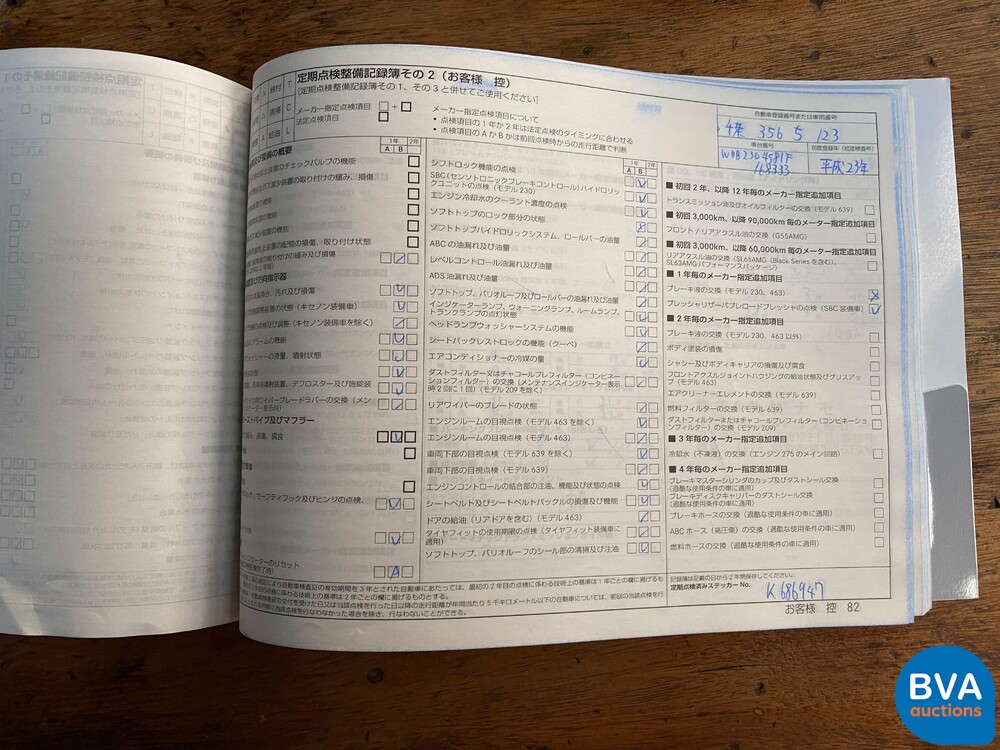 定期点検整備記録簿その2（お客様 控）
[定期点検整備記録簿その1、その3と併せてご使用ください]
メーカー指定点検項目
法定点検項目
メーカー指定点検項目について
・点検項目の1年か2年は法定点検のタイミングに合わせる
・点検項目のAかBかは前回点検時からの走行距離で判断
自動車登録番号または車両番号
356 5 123
車台番号
初度登録年（初度検査年）
平成23年
及び整備の概要
1年 2年
A B
のチェックバルブの機能
減少装置の取り付けの緩み、損傷
装置の配管の損傷、取り付け状態
の取り付けの緩み及び損傷
及び方向指示器
汚れ及び損傷
装置の状態（キセノン装備車）
の点検及び調整（キセノン装備車を除く）
アラームの機能
ォッシャーの液量、噴射状態
噴射装置、デフロスター及び施錠装
ワイパーブレードラバーの交換（メン
ーストパイプ及びマフラー
損傷、腐食
セーフティフック及びヒンジの点検、
ンジケーターのリセット
1年 2年
A B
シフトロック機能の点検
SBC（センソトロニックブレーキコントロール）ハイドロリッ
クユニットの点検（モデル230）
エンジン冷却水のクーラント濃度の点検
ソフトトップのロック部分の状態
ソフトトップハイドロリックシステム、ロールバーの油量
ABCの油漏れ及び油量
レベルコントロール油漏れ及び油量
ADS油漏れ及び油量
ソフトトップ、バリオルーフ及びロールバーの油漏れ及び油量
インジケーターランプ、ウォーニングランプ、ルームランプ、
トランクランプの点灯状態
ヘッドランプウォッシャーシステムの機能
シートバックレストロックの機能（クーペ）
エアコンディショナーの冷媒の量
ダストフィルター又はチャコールプレフィルター（コンビネー
ションフィルター）の交換（メンテナンスインジケーター表示
時2回に1回）（モデル209を除く）
リアワイパーのブレードの状態
エンジンルームの目視点検（モデル463を除く）
エンジンルームの目視点検（モデル463）
車両下部の目視点検（モデル639を除く）
車両下部の目視点検（モデル639）
エンジンコントロールの結合部の注油、機能及び状態の点検
シートベルト及びシートベルトバックルの損傷及び機能
ドアの給油（リアドアを含む）（モデル463）
タイヤフィットの使用期限の点検（タイヤフィット装備車に
適用）
ソフトトップ、バリオルーフのシール部の清掃及び注油
■ 初回2年、以降12年毎のメーカー指定追加項目
トランスミッション油及びオイルフィルターの交換（モデル639）
■ 初回3,000km、以降90,000km毎のメーター指定追加項目
フロント/リアアクスル油の交換（G55AMG）
■ 初回3,000km、以降60,000km毎のメーター指定追加項目
リアアクスル油の交換（SL65AMG（Black Seriesを含む）、
SL63AMGパフォーマンスパッケージ）
■ 1年毎のメーカー指定追加項目
ブレーキ液の交換（モデル230、463）
プレッシャリザーバプレロードプレッシャの点検（SBC装備車）
■ 2年毎のメーカー指定追加項目
ブレーキ液の交換（モデル230、463以外）
ボディ塗装の損傷
シャシー及びボディキャリアの損傷及び腐食
フロントアクスルジョイントハウジングの給油状態及びグリスアッ
プ（モデル463）
エアクリーナーエレメントの交換（モデル639）
燃料フィルターの交換（モデル639）
ダストフィルターまたはチャコールプレフィルター（コンビネーショ
ンフィルター）の交換（モデル209）
■ 3年毎のメーカー指定追加項目
冷却水（不凍液）の交換（エンジン275のメイン回路）
■ 4年毎のメーカー指定追加項目
ブレーキマスターシリンダのカップ及びダストシール交換
（過酷な使用条件の車に適用）
ブレーキディスクキャリパーのダストシール交換
（過酷な使用条件の車に適用）
ブレーキホースの交換（過酷な使用条件の車に適用）
ABCホース（高圧側）の交換（過酷な使用条件の車に適用）
燃料ホースの交換（過酷な使用条件の車に適用）
記録簿は記載の日から2年間保存してください。
定期点検済みステッカーNo.
K686947
お客様 控 82
BVA
auctions